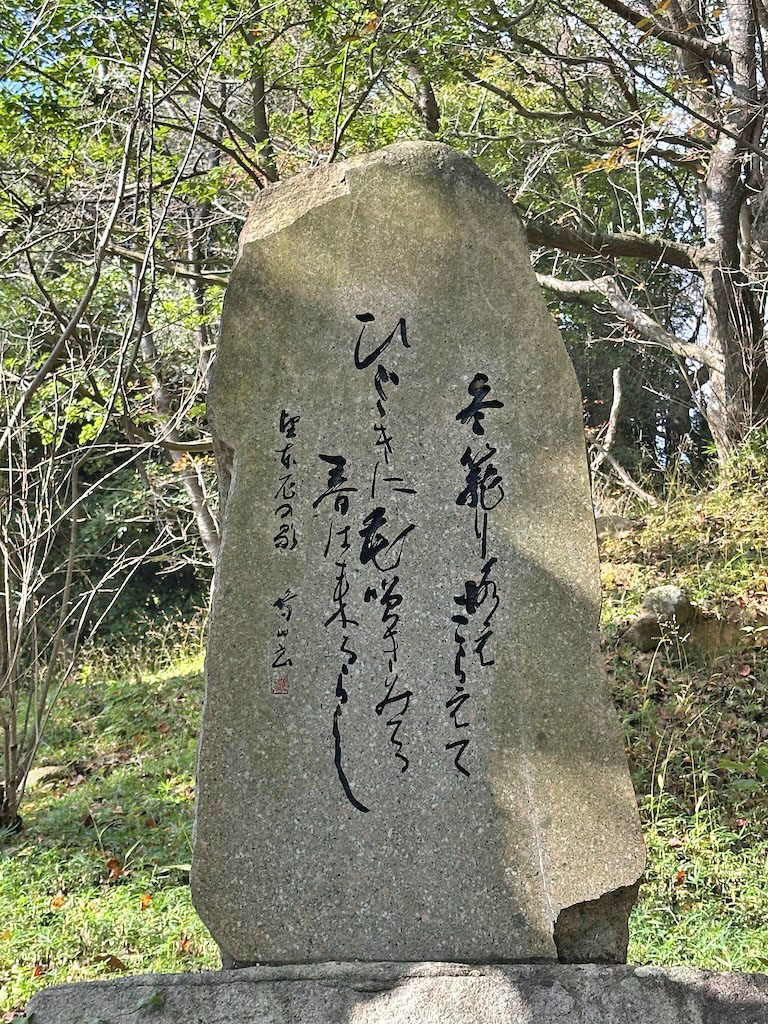 冬籠りこらえて
ひとゝきに花咲きみてる
春は来るらし
望東尼の歌